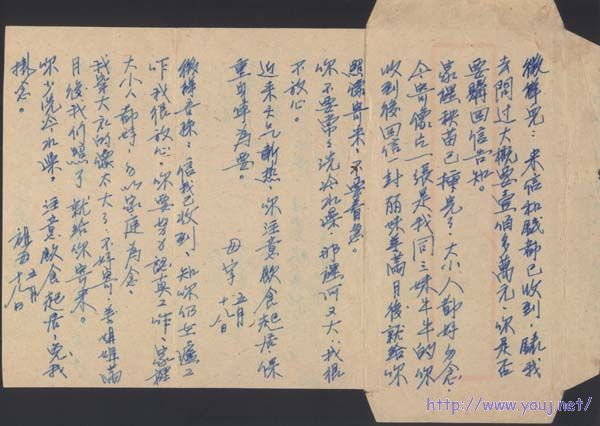 徽祥兒：来信和錢都已收到，驗我
去問过大概要壹佰多萬元你是否
要購回信告知。
家裡秧苗已種完了大小人都好勿念，
今寄像片一張是我同三妹牛牛的你
收到後回信一封丽妹等滿月後就給你
照像寄来，不要着急。
你不要常常洗冷水澡，那裡河又大，我很
不放心。
近来天气漸热，你注意飲食起居保
重身体為要。
母字 五月十八日
徽祥吾孫：信我已收到，知你仍在瀘工
作我很放心，你要努力認真工作，家裡
大小人都好，勿以家庭為念，
我年大 的像太大了，不好寄，李娟娟滿
月後我们照了就給你寄来。
你少洗冷水澡。注意飲食起居，免我
掛念。
祖母 五月十八日
http://www.youj.net/